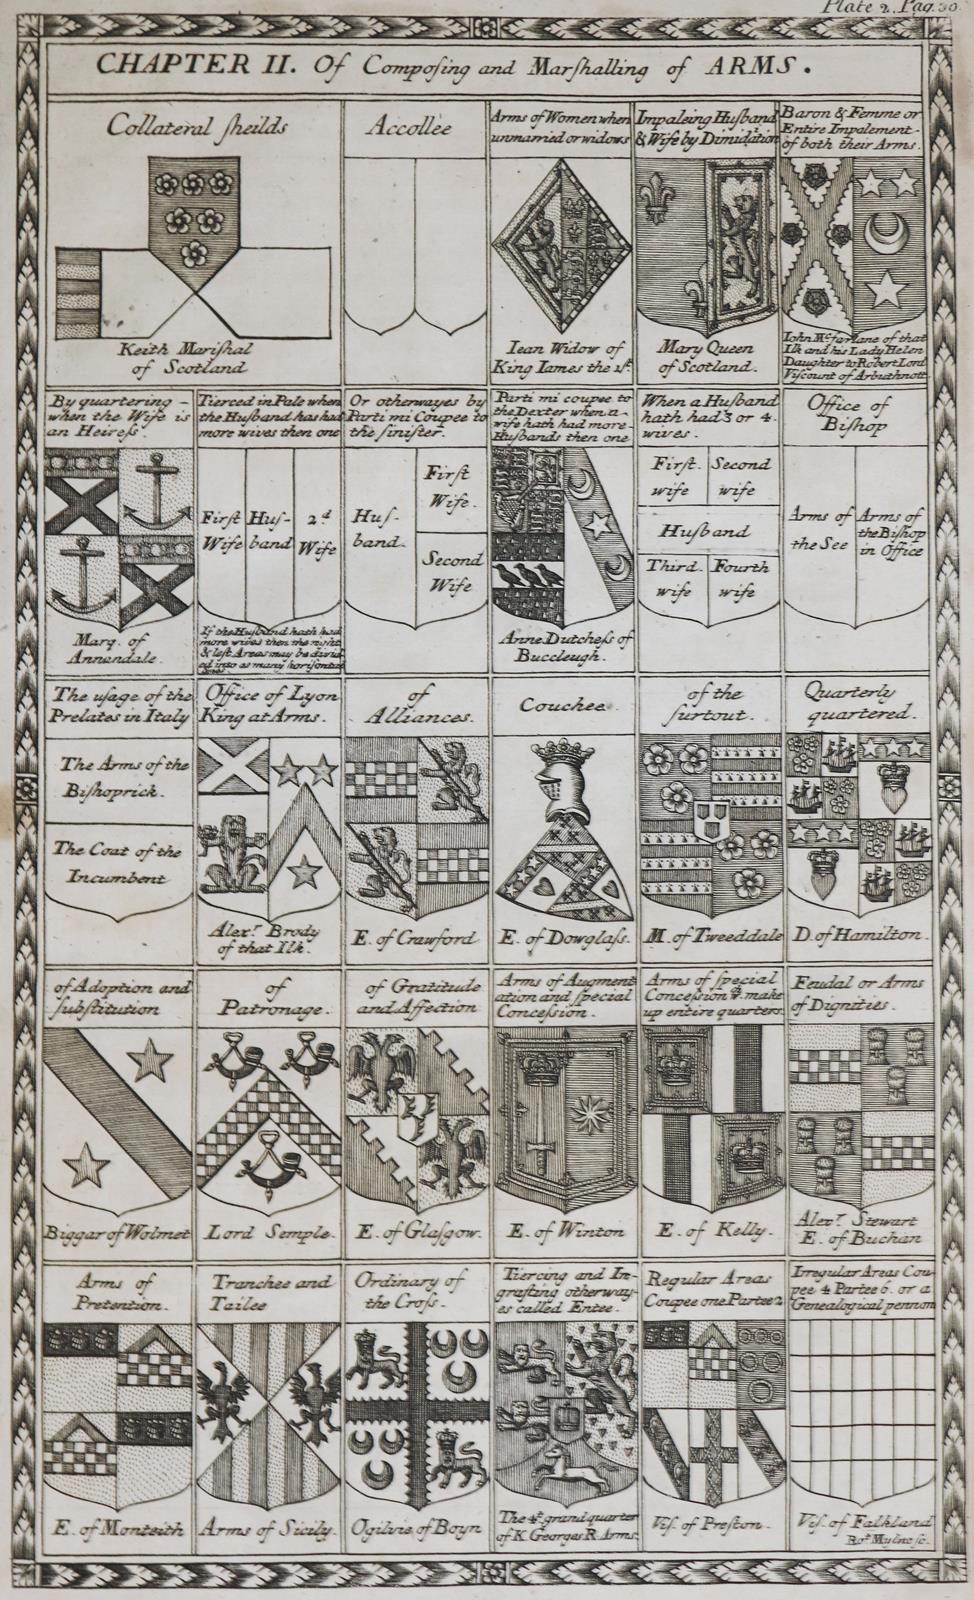 Plate 2. Pag. 30.
CHAPTER II. Of Composing and Marshalling of ARMS.
Collateral sheilds
Keith Marishal
of Scotland
Accollée
Arms of Women when
unmarried or widows
Iean Widow of
King Iames the 1st.
Impaleing Husband
& Wife by Dimidation
Mary Queen
of Scotland.
Baron & Femme or
Entire Impalement
of both their Arms.
Iohn Mcfarlane of that
Ilk and his Lady Helen
Daughter to Robert Lord
Viscount of Arbuthnott
By quartering
when the Wife is
an Heiress.
Marq. of
Annandale.
Tierced in Pale when
the Husband has had
more wives then one
First
Wife
Hus-
band
2d
Wife
If the Husband hath had
more wives then the right
& left Areas may be divid
ed into as many horisontal
Or otherwayes by
Parti mi Coupee to
the sinister.
Hus-
band
First
Wife.
Second
Wife
Parti mi coupee to
the Dexter when a
wife hath had more
Husbands then one
Anne Dutchess of
Buccleugh.
When a Husband
hath had 3 or 4
wives.
First
wife
Second
wife
Husband
Third
wife
Fourth
wife
Office of
Bishop
Arms of
the See
Arms of
the Bishop
in Office
The usage of the
Prelates in Italy
The Arms of the
Bishoprick.
The Coat of the
Incumbent
Office of Lyon
King at Arms.
Alexr. Brody
of that Ilk.
of
Alliances.
E. of Crawford
Couchee.
E. of Dowglass.
of the
surtout.
M. of Tweeddale
Quarterly
quartered.
D. of Hamilton.
of Adoption and
substitution
Biggar of Wolmet
of
Patronage.
Lord Semple.
of Gratitude
and Affection
E. of Glasgow.
Arms of Augment
ation and special
Concession.
E. of Winton
Arms of special
Concession yt. make
up entire quarters.
E. of Kelly.
Feudal or Arms
of Dignities.
Alexr. Stewart
E. of Buchan
Arms of
Pretention.
E. of Monteith
Tranchee and
Tailee
Arms of Sicily.
Ordinary of
the Cross.
Ogilvie of Boyn
Tiercing and In-
grafting otherway-
es called Entee.
The 4t. grand quarter
of K. Georges R. Arms.
Regular Areas
Coupee one Partee 2
Vis. of Preston.
Irregular Areas Cou-
pee 4 Partee 6. or a
Genealogical pennon
Vis. of Falkland
Rot. Mylne sc.